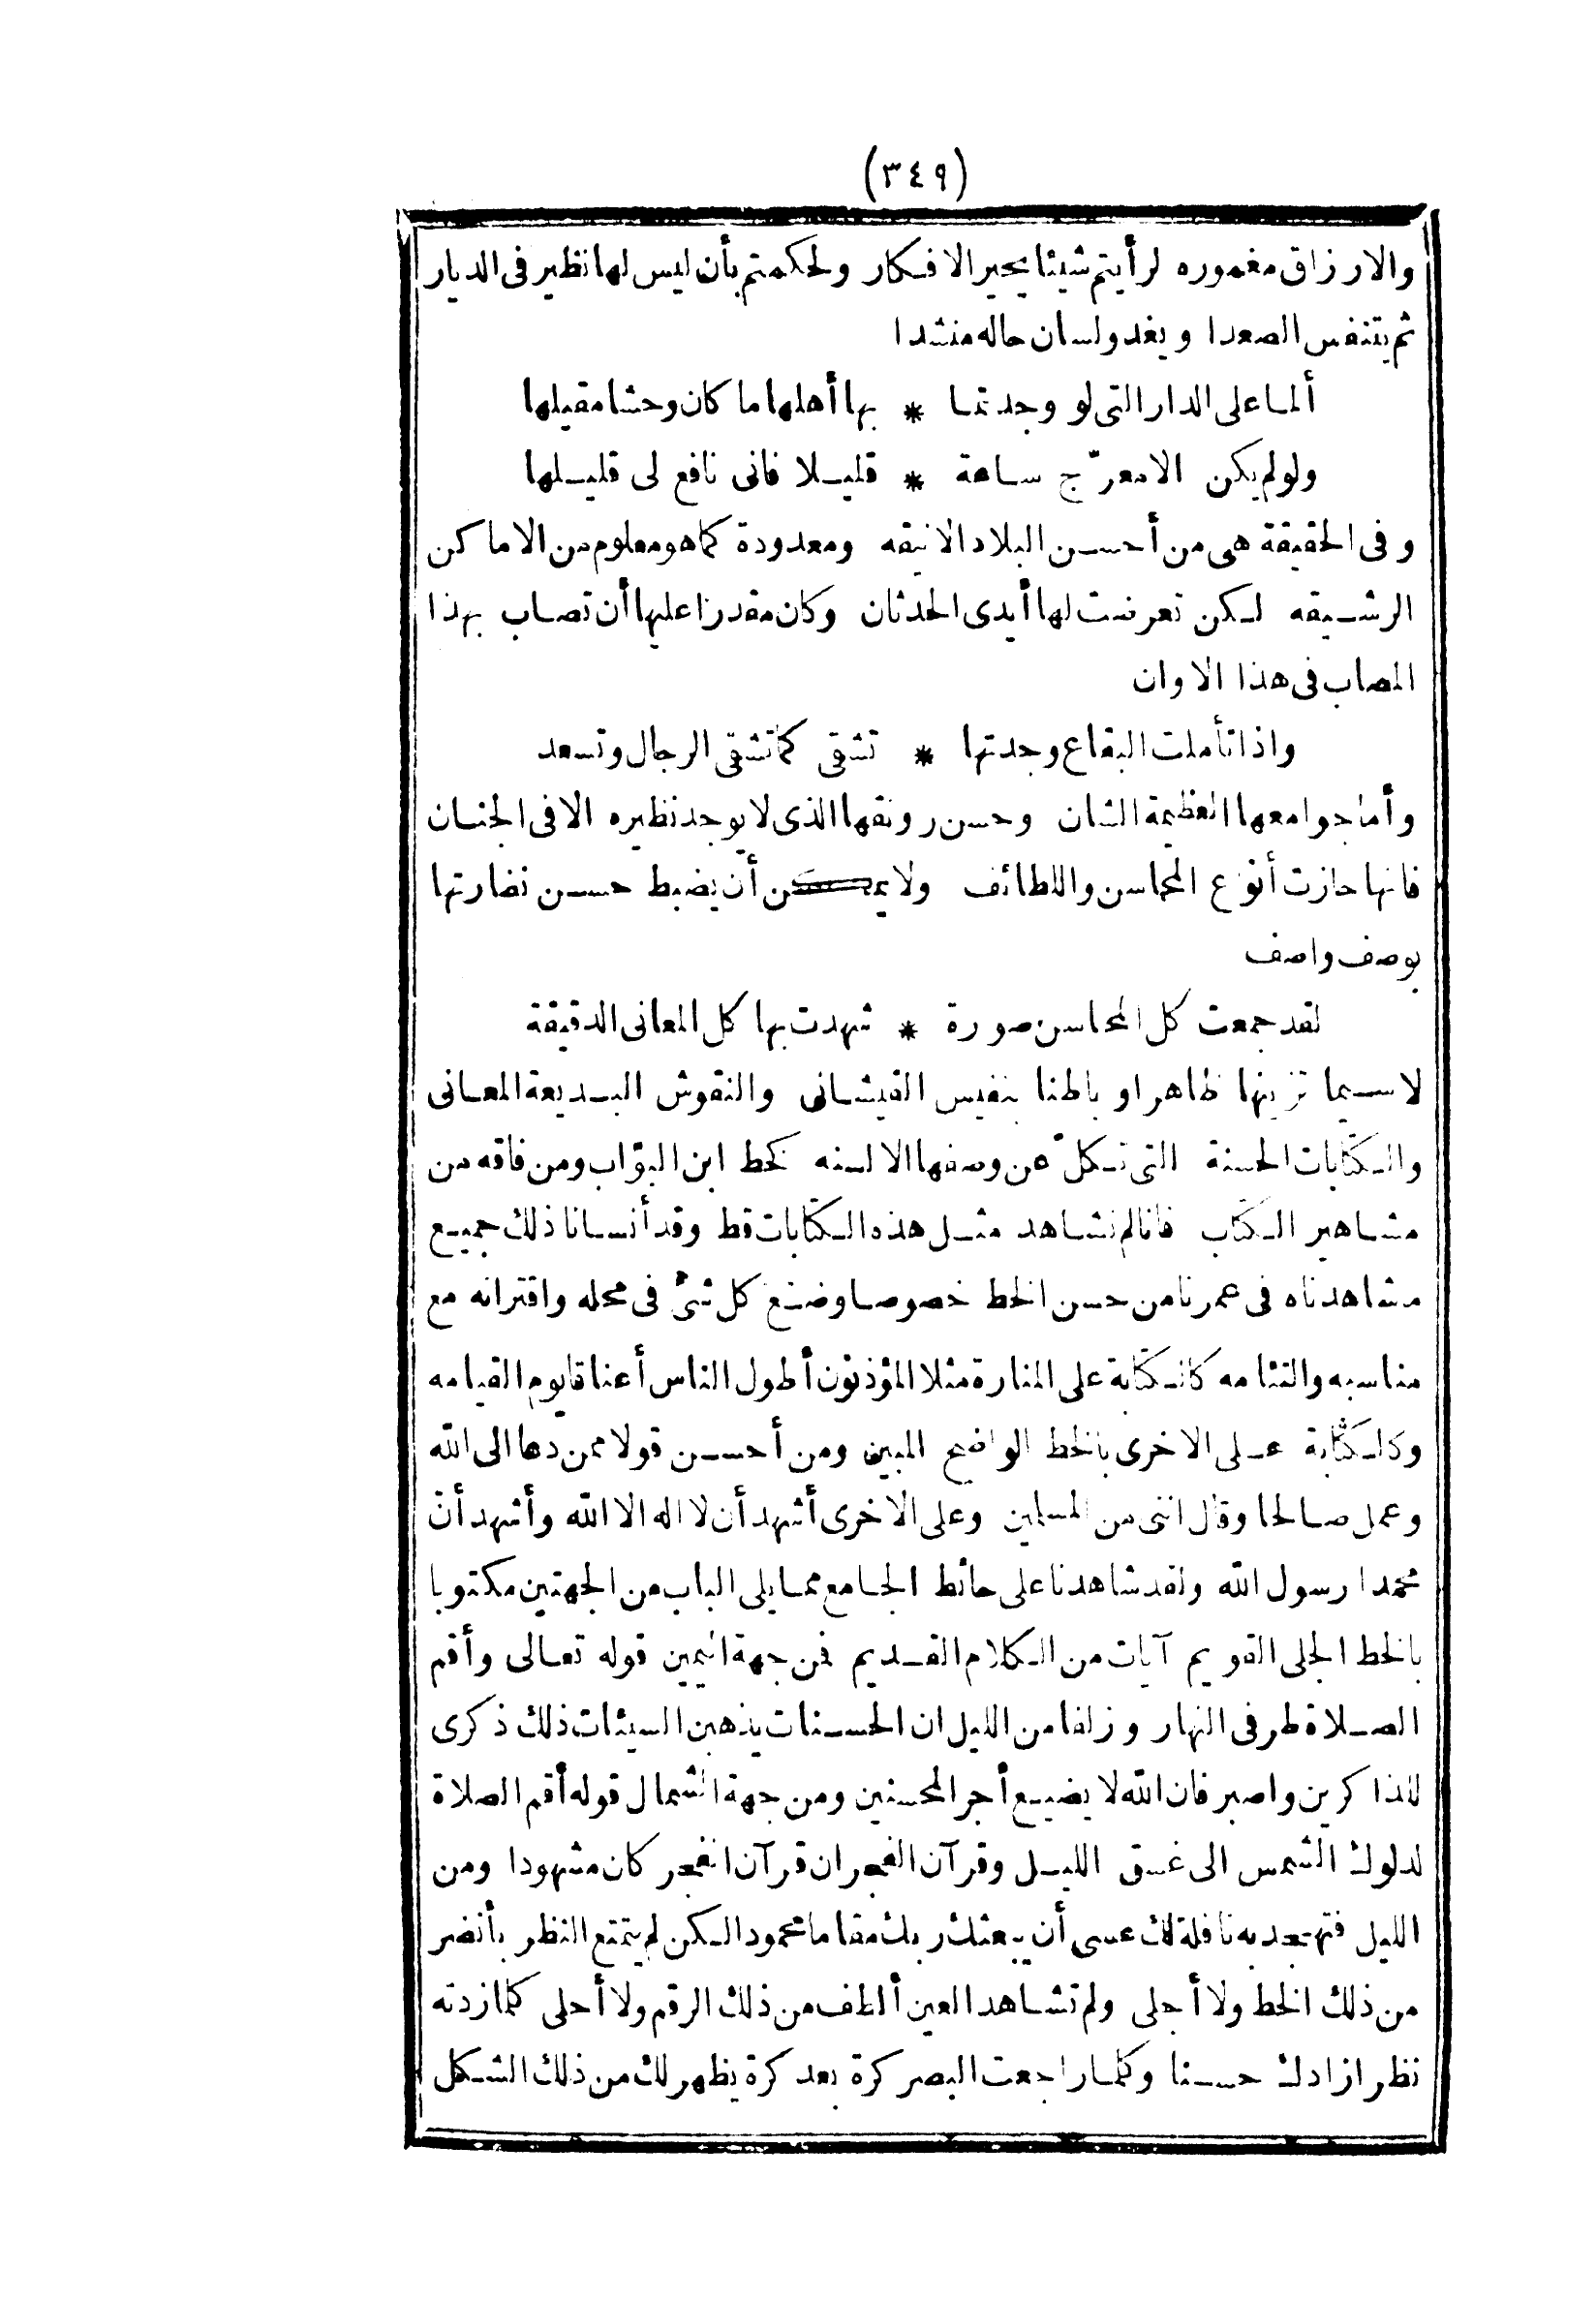 (٣٤٩)
والارزاق مغموره لرأيتم شيئا يحير الافكار ولحكمتم بأن ليس لها نظير فى الديار
ثم يتنفس الصعدا ويغدو لسان حاله منشدا
ألما على الدار التى لو وجدتما * بها أهلها ما كان وحشا مقيلها
ولو لم يكن الا معرّج ساعة * قليلا فانى نافع لى قليلها
وفى الحقيقة هى من أحسن البلاد الانيقه ومعدودة كما هو معلوم من الاماكن
الرشيقه لكن تعرضت لها أيدى الحدثان وكان مقدرا عليها أن تصاب بهذا
المصاب فى هذا الاوان
واذا تأملت البقاع وجدتها * تشقى كما تشقى الرجال وتسعد
وأما جوامعها العظيمة الشان وحسن رونقها الذى لا يوجد نظيره الا فى الجنان
فانها حازت أنواع المحاسن واللطائف ولا يمكن أن يضبط حسن نضارتها
بوصف واصف
لقد جمعت كل المحاسن صورة * شهدت بها كل المعانى الدقيقة
لا سيما تزيينها ظاهرا وباطنا بنفيس القيشانى والنقوش البديعة المعانى
والكتابات الحسنة التى تكلّ عن وصفها الالسنه كخط ابن البوّاب ومن فاقه من
مشاهير الكتاب فانا لم نشاهد مثل هذه الكتابات قط وقد أنسانا ذلك جميع
مشاهدناه فى عمرنا من حسن الخط خصوصا وضع كل شئ فى محله واقترانه مع
مناسبه والتئامه كالكتابة على المنارة مثلا المؤذنون أطول الناس أعناقا يوم القيامه
وكالكتابة على الاخرى بالخط الواضح المبين ومن أحسن قولا ممن دعا الى الله
وعمل صالحا وقال اننى من المسلمين وعلى الاخرى أشهد أن لا اله الا الله وأشهد أنّ
محمدا رسول الله ولقد شاهدنا على حائط الجامع مما يلى الباب من الجهتين مكتوبا
بالخط الجلى القويم آيات من الكلام القديم فمن جهة اليمين قوله تعالى وأقم
الصلاة طرفى النهار وزلفا من الليل ان الحسنات يذهبن السيئات ذلك ذكرى
للذاكرين واصبر فان الله لا يضيع أجر المحسنين ومن جهة الشمال قوله أقم الصلاة
لدلوك الشمس الى غسق الليل وقرآن الفجر ان قرآن الفجر كان مشهودا ومن
الليل فتهجد به نافلة لك عسى أن يبعثك ربك مقاما محمودا لكن لم يتمتع النظر بأنضر
من ذلك الخط ولا أجلى ولم تشاهد العين ألطف من ذلك الرقم ولا أحلى كلما زدته
نظرا زادك حسنا وكلما راجعت البصر كرة بعد كرة يظهر لك من ذلك الشكل